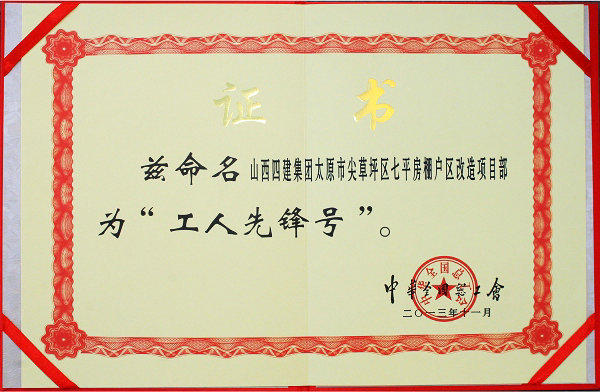 证书
兹命名山西四建集团太原市尖草坪区七平房棚户区改造项目部
为“工人先锋号”。
中華全國總工會
二〇一三年十一月
中华全国总工会